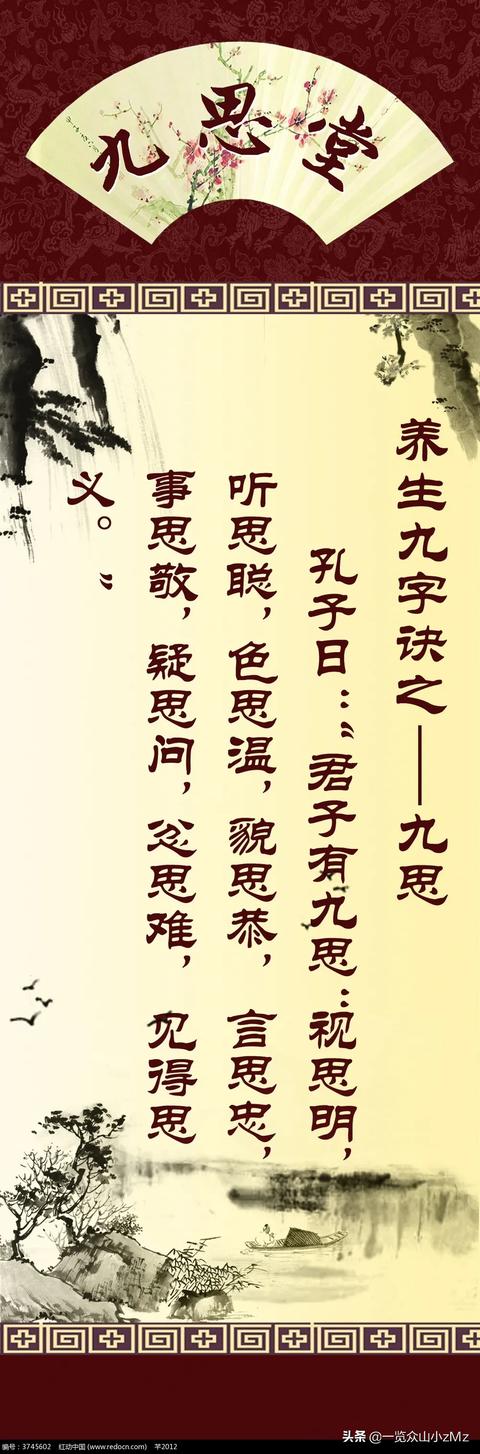 九思堂
养生九字诀之——九思
孔子曰：“君子有九思：视思明，
听思聪，色思温，貌思恭，言思忠，
事思敬，疑思问，忿思难，见得思
义。”
编号：3745602 红动中国 (www.redocn.com) 芊2012
头条 @一览众山小zMz